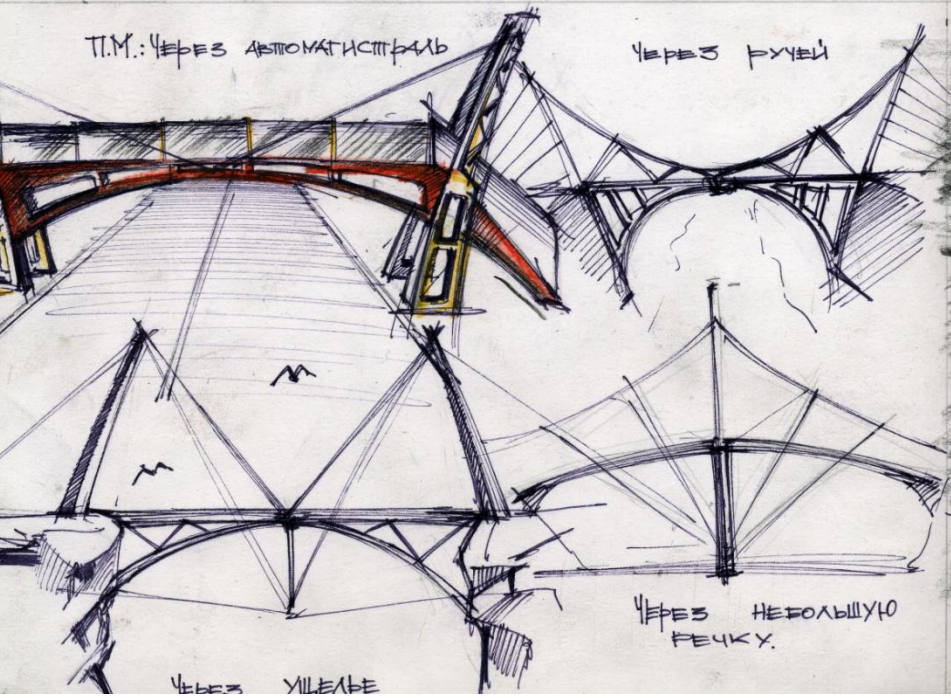 П.М.: ЧЕРЕЗ АВТОМАГИСТРАЛЬ
ЧЕРЕЗ РУЧЕЙ
ЧЕРЕЗ НЕБОЛЬШУЮ
РЕЧКУ.
ЧЕРЕЗ УЩЕЛЬЕ